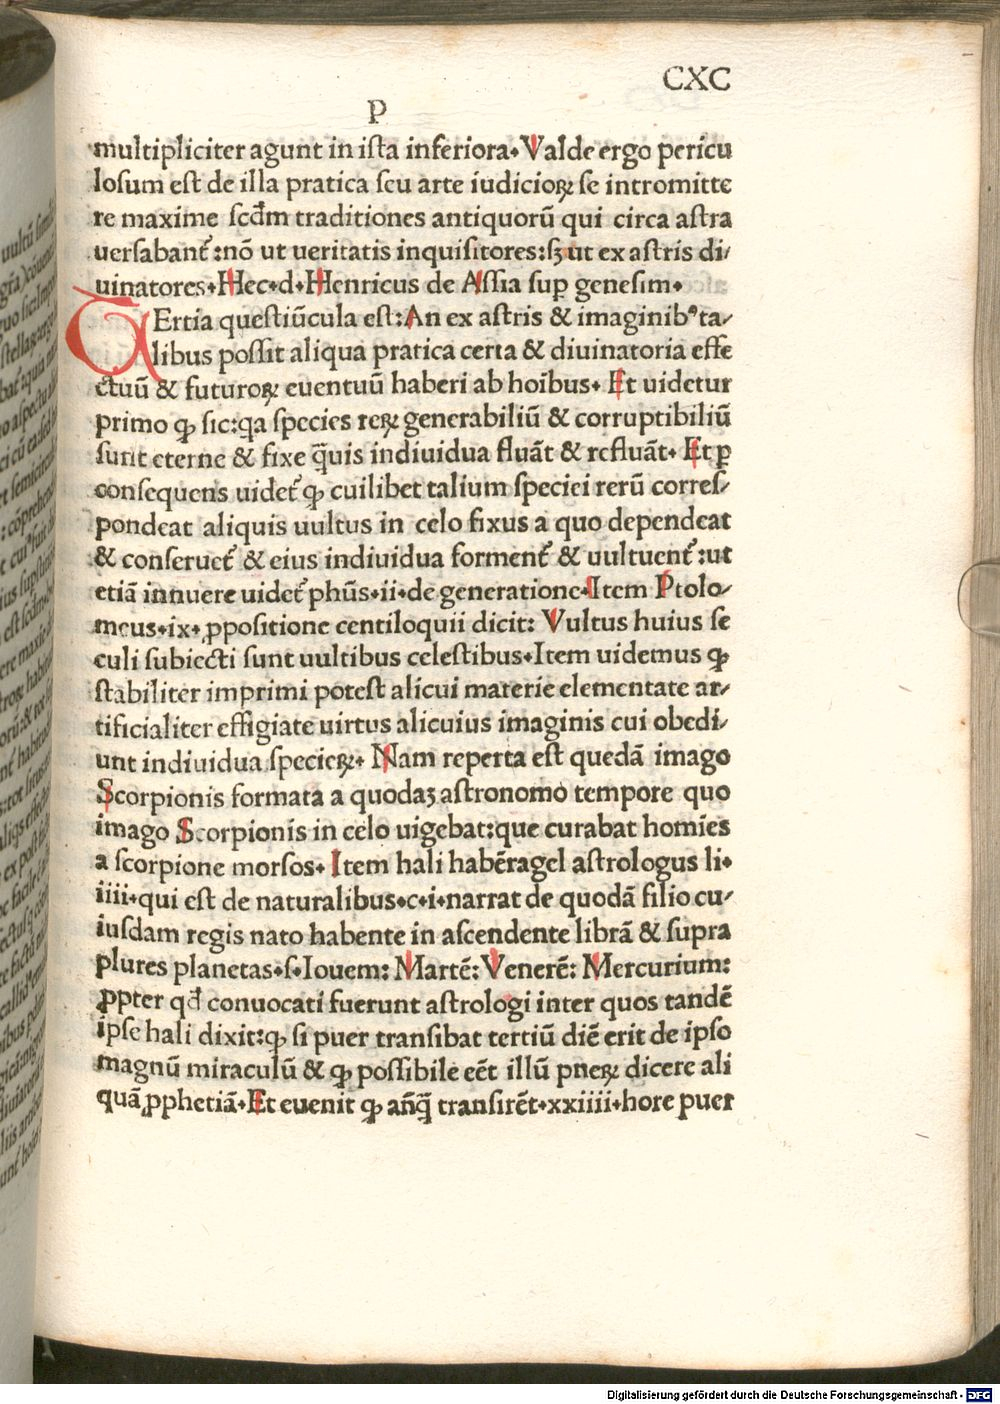 CXC
P
multipliciter agunt in ista inferiora. Valde ergo pericu
losum est de illa pratica seu arte iudicioꝝ se intromitte
re maxime scd̄m traditiones antiquorū qui circa astra
uersabant᷑: nō ut ueritatis inquisitores: sꝫ ut ex astris di-
uinatores. Hec. d. Henricus de Assia suꝑ genesim.
TErtia questiūcula est: An ex astris & imaginibꝰ ta-
libus possit aliqua pratica certa & diuinatoria effe
ctuū & futuroꝝ euentuū haberi ab hoībus. Et uidetur
primo ꝙ sic: qa species reꝝ generabiliū & corruptibiliū
sunt eterne & fixe q̄uis indiuidua fluāt & refluāt. Et ꝑ
consequens uidet᷑ ꝙ cuilibet talium speciei rerū corres-
pondeat aliquis uultus in celo fixus a quo dependeat
& conseruet᷑ & eius indiuidua forment᷑ & uultuent᷑: ut
etiā innuere uidet᷑ phūs. ii. de generatione. Item Ptolo-
meus. ix. ꝓpositione centiloquii dicit: Vultus huius se
culi subiecti sunt uultibus celestibus. Item uidemus ꝙ
stabiliter imprimi potest alicui materie elementate ar-
tificialiter effigiate uirtus alicuius imaginis cui obedi-
unt indiuidua specieꝝ. Nam reperta est quedā imago
Scorpionis formata a quodaꝫ astronomo tempore quo
imago Scorpionis in celo uigebat: que curabat homies
a scorpione morsos. Item hali habēragel astrologus li.
iiii. qui est de naturalibus. c. i. narrat de quodā filio cu-
iusdam regis nato habente in ascendente librā & supra
plures planetas. s. Iouem: Martē: Venerē: Mercurium:
ꝓpter qd̄ conuocati fuerunt astrologi inter quos tandē
ipse hali dixit: ꝙ si puer transibat tertiū diē erit de ipso
magnū miraculū & ꝙ possibile eēt illū pueꝝ dicere ali
quā ꝓphetiā. Et euenit ꝙ añq̄ transirēt. xxiiii. hore puer
Digitalisierung gefördert durch die Deutsche Forschungsgemeinschaft - DFG